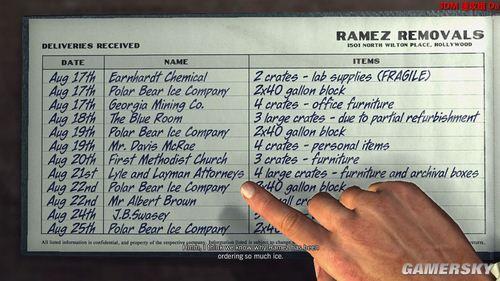 3DM
RAMEZ REMOVALS
1501 NORTH WILTON PLACE, HOLLYWOOD
DELIVERIES RECEIVED
DATE NAME ITEMS
Aug 17th Earnhardt Chemical 2 crates - lab supplies (FRAGILE)
Aug 17th Polar Bear Ice Company 2x40 gallon block
Aug 17th Georgia Mining Co. 4 crates - office furniture
Aug 18th The Blue Room 3 large crates - due to partial refurbishment
Aug 19th Polar Bear Ice Company 2x40 gallon block
Aug 19th Mr. Davis McRae 4 crates - personal items
Aug 20th First Methodist Church 3 crates - furniture
Aug 21st Lyle and Layman Attorneys 4 large crates - furniture and archival boxes
Aug 22nd Polar Bear Ice Company 2x40 gallon block
Aug 22nd Mr Albert Brown small crates -
Aug 24th J.B.Swasey
Aug 25th Polar Bear Ice Company 2x40
All listed information is confidential, and property of the respective company. Information listed is subject to change
Hmm, I think we know why Ramez has been
ordering so much ice.
GAMERSKY